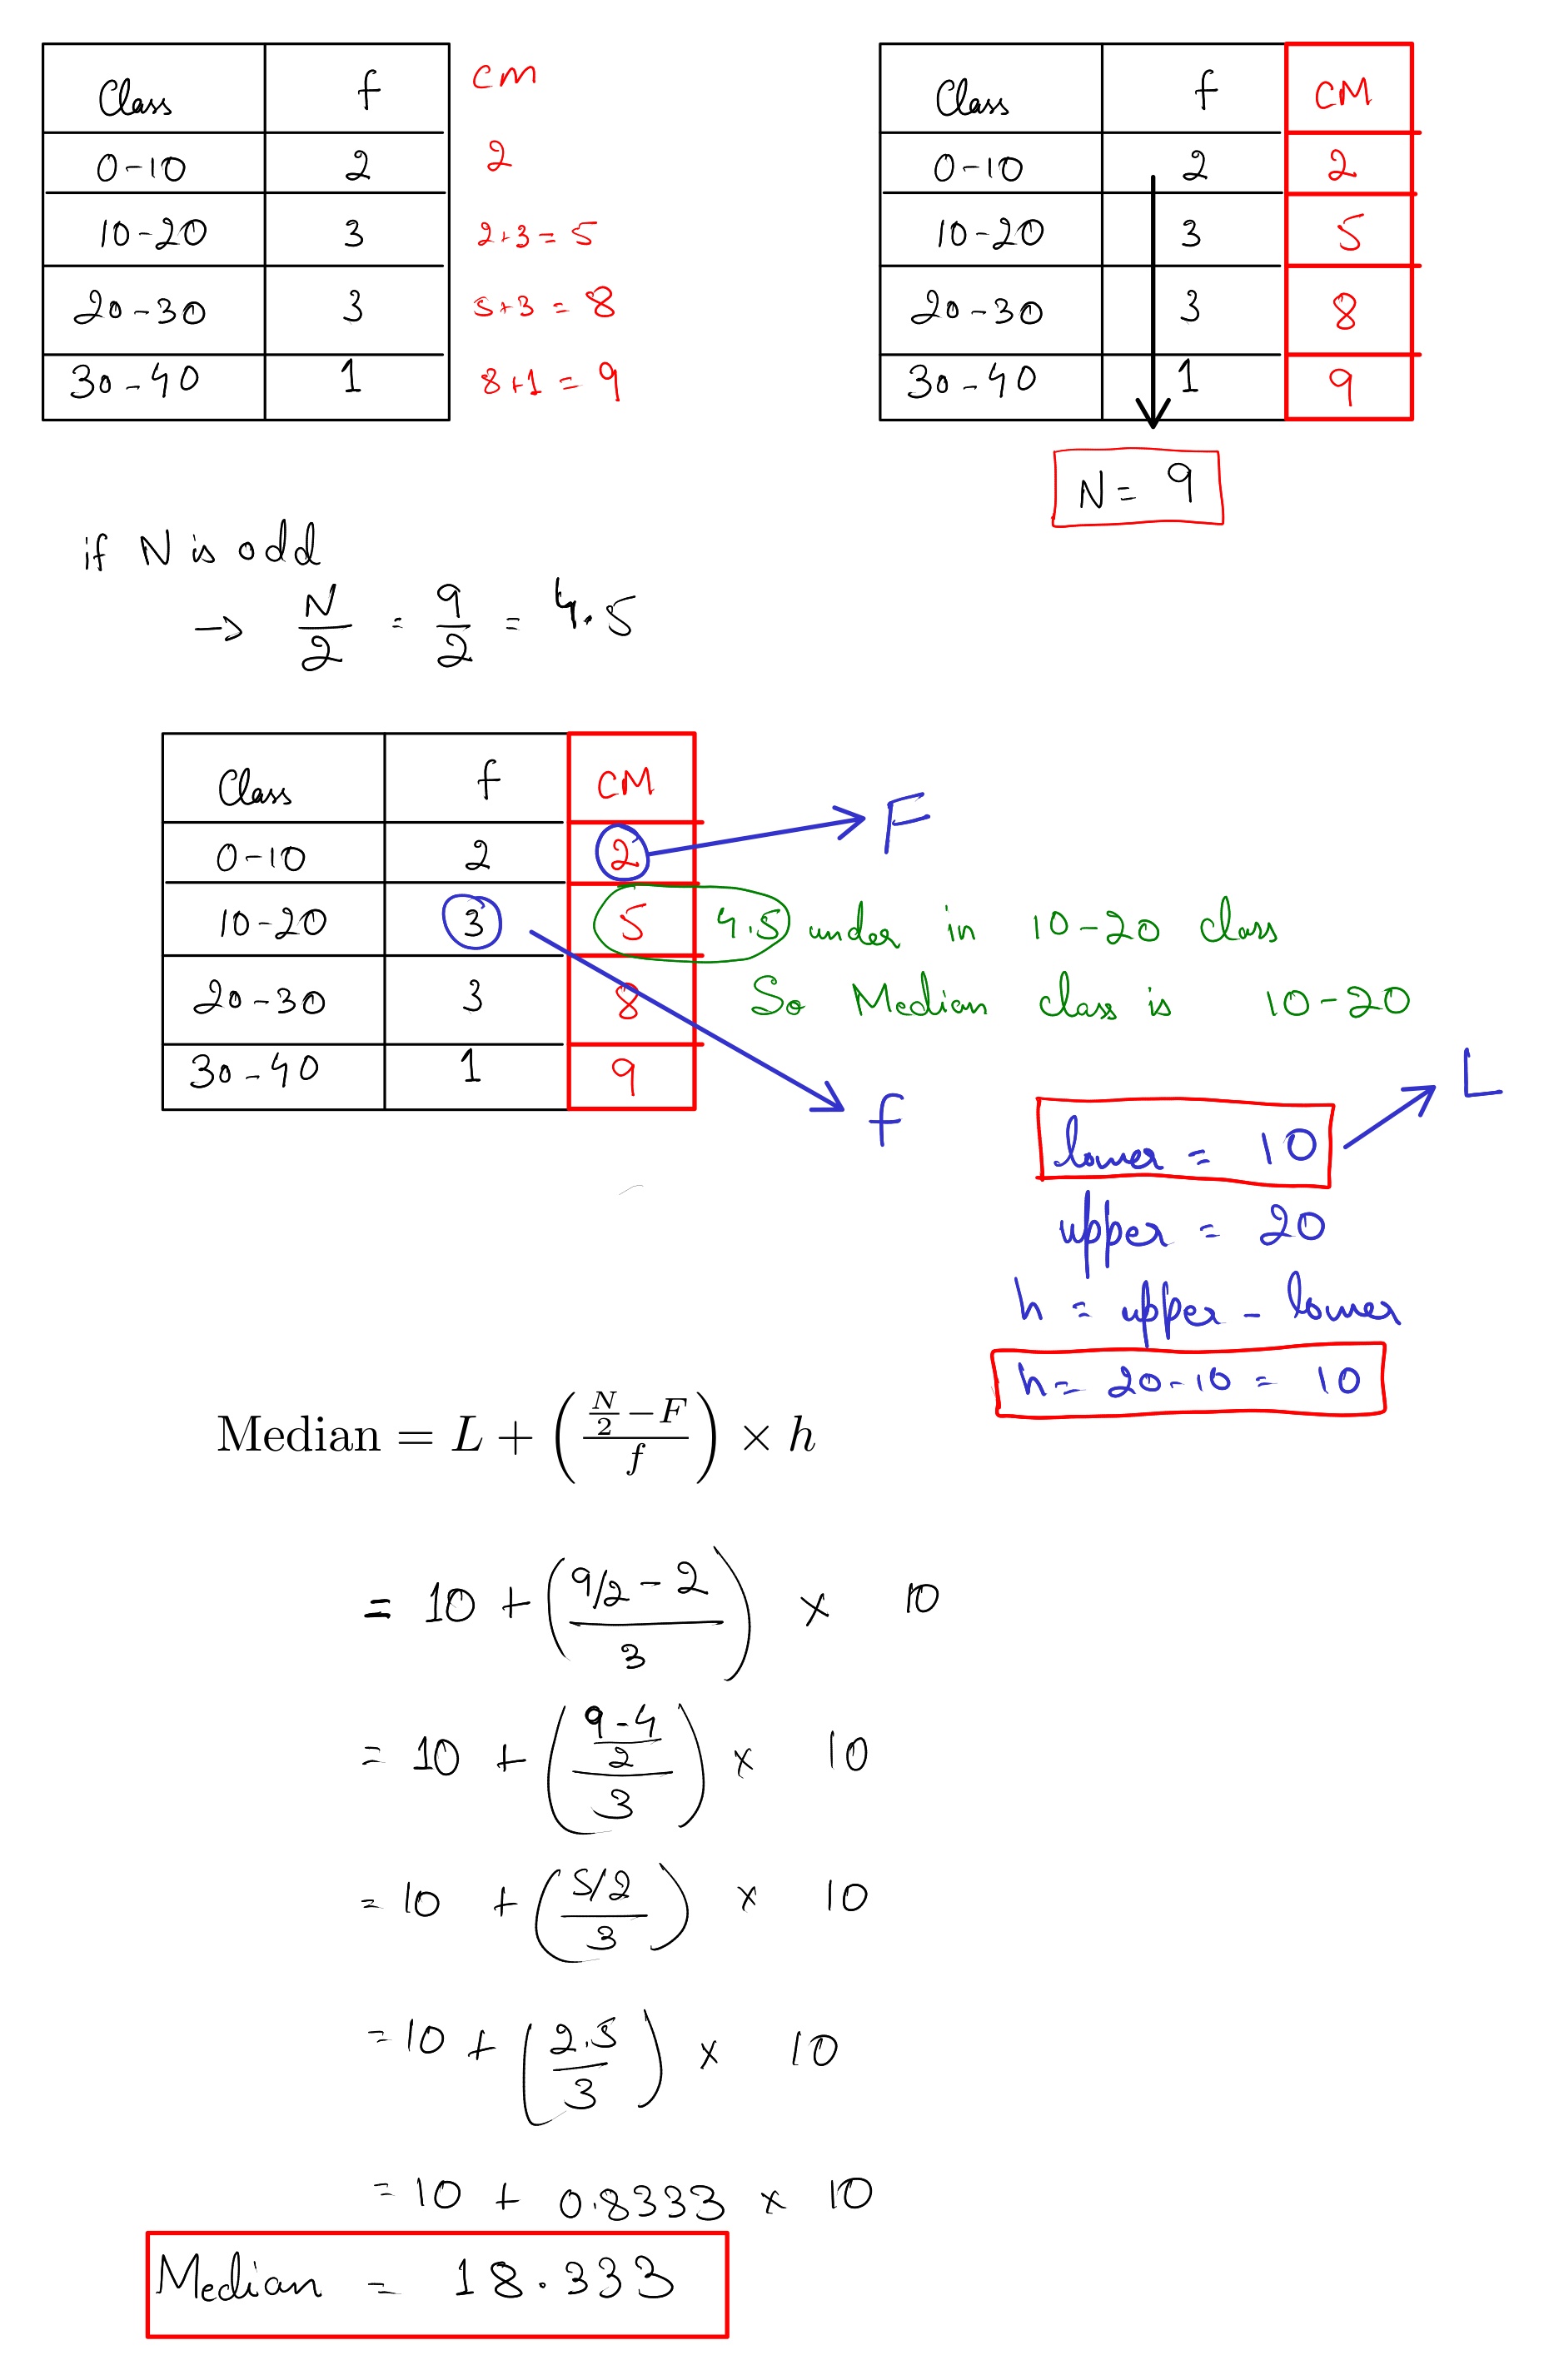 Class f CM
0-10 2 2
10-20 3 2+3=5
20-30 3 5+3=8
30-40 1 8+1=9
Class f CM
0-10 2 2
10-20 3 5
20-30 3 8
30-40 1 9
N= 9
if N is odd
→ N/2 = 9/2 = 4.5
Class f CM
0-10 2 2 → F
10-20 3 5 4.5 under in 10-20 class
20-30 3 8 So Median class is 10-20
30-40 1 9
f
lower = 10 → L
upper = 20
h = upper - lower
h= 20-10 = 10
Median = L + ((N/2 - F)/f) × h
= 10 + ((9/2 - 2)/3) × 10
= 10 + (((9-4)/2)/3) × 10
= 10 + ((5/2)/3) × 10
= 10 + (2.5/3) × 10
= 10 + 0.8333 × 10
Median = 18.333